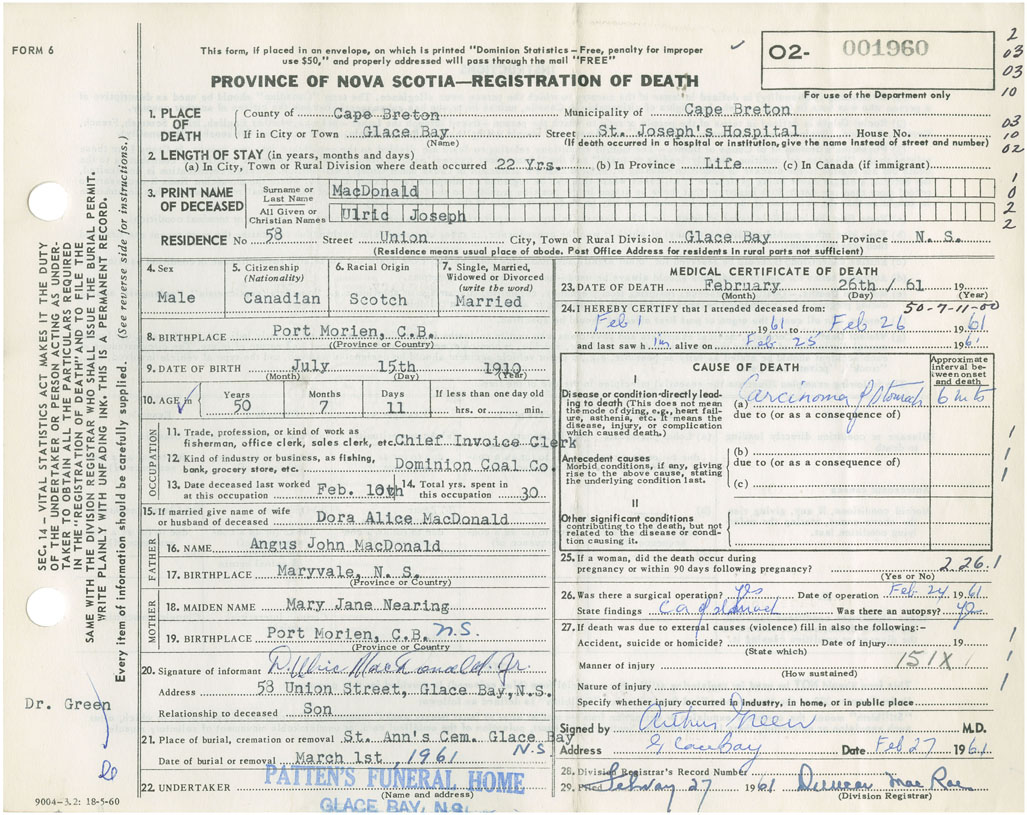 FORM 6
This form, if placed in an envelope, on which is printed "Dominion Statistics—Free, penalty for improper
use $50," and properly addressed will pass through the mail "FREE"
02- 001960
For use of the Department only
PROVINCE OF NOVA SCOTIA—REGISTRATION OF DEATH
1. PLACE OF DEATH
County of Cape Breton Municipality of Cape Breton
If in City or Town Glace Bay Street St. Joseph's Hospital House No.
(Name) (If death occurred in a hospital or institution, give the name instead of street and number)
2. LENGTH OF STAY (in years, months and days)
(a) In City, Town or Rural Division where death occurred 22 Yrs. (b) In Province Life (c) In Canada (if immigrant)
3. PRINT NAME OF DECEASED
Surname or Last Name MacDonald
All Given or Christian Names Ulric Joseph
RESIDENCE No 58 Street Union City, Town or Rural Division Glace Bay Province N. S.
(Residence means usual place of abode. Post Office Address for residents in rural parts not sufficient)
4. Sex
Male
5. Citizenship (Nationality)
Canadian
6. Racial Origin
Scotch
7. Single, Married, Widowed or Divorced (write the word)
Married
8. BIRTHPLACE Port Morien, C.B.
(Province or Country)
9. DATE OF BIRTH July 15th 1910
(Month) (Day) (Year)
10. AGE in Years Months Days If less than one day old
50 7 11 hrs. or min.
OCCUPATION
11. Trade, profession, or kind of work as
fisherman, office clerk, sales clerk, etc. Chief Invoice Clerk
12. Kind of industry or business, as fishing,
bank, grocery store, etc. Dominion Coal Co.
13. Date deceased last worked at this occupation Feb. 10th
14. Total yrs. spent in this occupation 30
15. If married give name of wife
or husband of deceased Dora Alice MacDonald
FATHER
16. NAME Angus John MacDonald
17. BIRTHPLACE Maryvale, N. S.
(Province or Country)
MOTHER
18. MAIDEN NAME Mary Jane Nearing
19. BIRTHPLACE Port Morien, C.B. N.S.
(Province or Country)
20. Signature of informant D. Ulric MacDonald Jr.
Address 58 Union Street, Glace Bay, N.S.
Relationship to deceased Son
21. Place of burial, cremation or removal St. Ann's Cem. Glace Bay
N.S
Date of burial or removal March 1st, 1961
22. UNDERTAKER PATTEN'S FUNERAL HOME
(Name and address)
GLACE BAY, N.S.
MEDICAL CERTIFICATE OF DEATH
23. DATE OF DEATH February 26th / 61 19
(Month) (Day) (Year)
24. I HEREBY CERTIFY that I attended deceased from: 50-7-11-00
Feb 1 1961 to Feb 26 1961
and last saw him alive on Feb 25 1961
CAUSE OF DEATH
Approximate interval between onset and death
I
Disease or condition directly leading to death (This does not mean the mode of dying, e.g., heart failure, asthenia, etc. It means the disease, injury, or complication which caused death.)
(a) Carcinoma of Stomach 6 mts
due to (or as a consequence of)
Antecedent causes
Morbid conditions, if any, giving rise to the above cause, stating the underlying condition last.
(b)
due to (or as a consequence of)
(c)
II
Other significant conditions
contributing to the death, but not related to the disease or condition causing it.
25. If a woman, did the death occur during
pregnancy or within 90 days following pregnancy? 2.26.1
(Yes or No)
26. Was there a surgical operation? yes Date of operation Feb 24 1961
State findings Ca of stomach Was there an autopsy?
27. If death was due to external causes (violence) fill in also the following:-
Accident, suicide or homicide? Date of injury 19
(State which)
Manner of injury 151X
(How sustained)
Nature of injury
Specify whether injury occurred in industry, in home, or in public place
Signed by Arthur Green M.D.
Address Glace Bay Date Feb 27 1961
28. Division Registrar's Record Number
29. Filed February 27 1961 Duncan MacRae
(Division Registrar)
2
03
03
10
03
10
02
1
0
2
2
1
1
1
1
1
1
SEC. 14 – VITAL STATISTICS ACT MAKES IT THE DUTY
OF THE UNDERTAKER OR PERSON ACTING AS UNDER-
TAKER TO OBTAIN ALL THE PARTICULARS REQUIRED
IN THE "REGISTRATION OF DEATH" AND TO FILE THE
SAME WITH THE DIVISION REGISTRAR WHO SHALL ISSUE THE BURIAL PERMIT.
WRITE PLAINLY WITH UNFADING INK. THIS IS A PERMANENT RECORD.
Every item of information should be carefully supplied. (See reverse side for instructions.)
Dr. Green
9004-3.2: 18-5-60